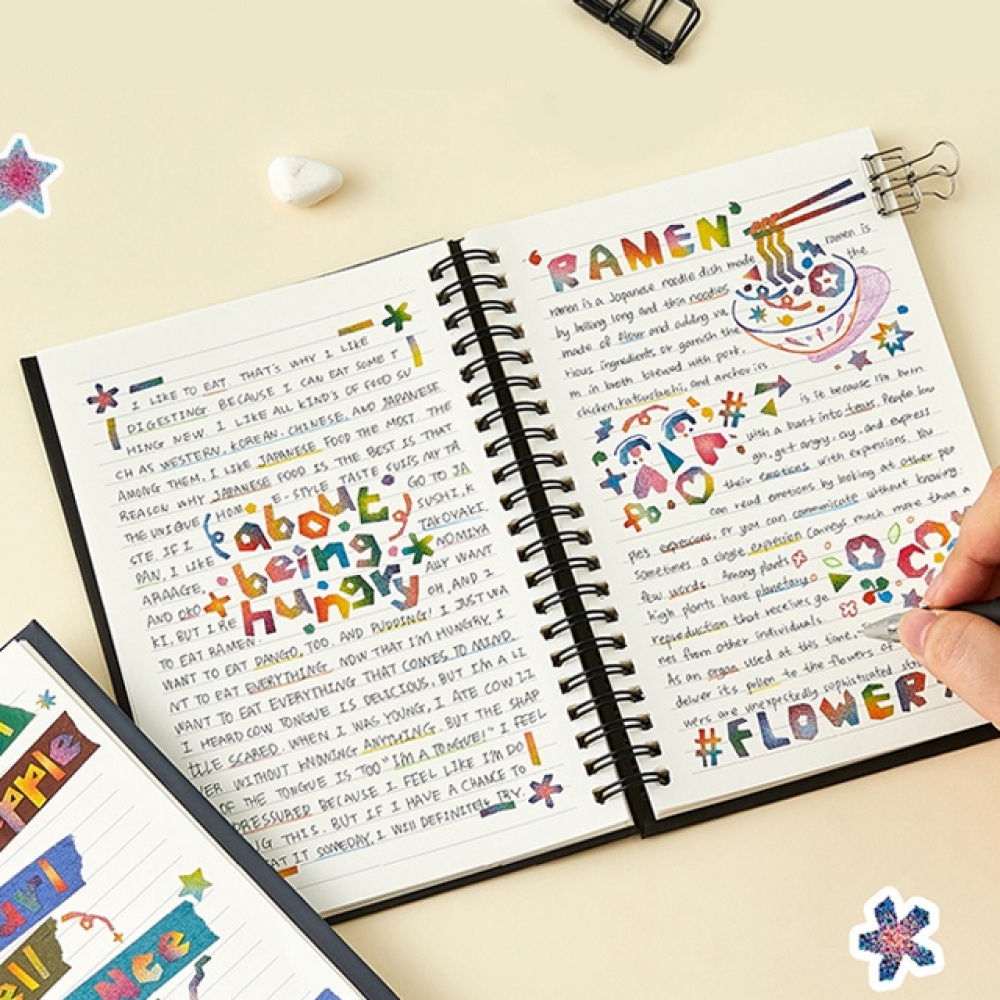 I LIKE TO EAT. THAT'S WHY I LIKE
DIGESTING BECAUSE I CAN EAT SOME T
HING NEW. I LIKE ALL KIND'S OF FOOD SU
CH AS WESTERN, KOREAN, CHINESE, AND JAPANESE
AMONG THEM, I LIKE JAPANESE FOOD THE MOST. THE
REASON WHY JAPANESE FOOD IS THE BEST IS THAT
THE UNIQUE HOM E-STYLE TASTE SUITS MY TA
STE. IF I GO TO JA
PAN, I LIKE SUSHI, K
ARAAGE, TAKOYAKI,
AND OKO NOMIYA
KI, BUT I RE ALLY WANT
TO EAT RAMEN. OH, AND I
about
being
hungry
WANT TO EAT DANGO, TOO. AND PUDDING! I JUST WA
NT TO EAT EVERYTHING. NOW THAT I'M HUNGRY, I
WANT TO EAT EVERYTHING THAT COMES TO MIND.
I HEARD COW TONGUE IS DELICIOUS, BUT I'M A LI
TTLE SCARED. WHEN I WAS YOUNG, I ATE COW
VER WITHOUT KNOWING ANYTHING, BUT THE SHAP
OF THE TONGUE IS TOO "I'M A TONGUE!" I FEEL
PRESSURED BECAUSE I FEEL LIKE I'M DO
NG THIS. BUT IF I HAVE A CHANCE TO
EAT IT SOMEDAY, I WILL DEFINITELY TRY.
'RAMEN'
ramen is a Japanese noodle dish made ramen is
by boiling long and thin noodles the
made of flour and adding va
rious ingredients or garnish the
m in broth brewed with pork,
chicken, katsuobushi, and anchovies
is it because I'm born
with a burst into tears. People lau
gh, get angry, cry, and express
their emotions with expressions. You
can read emotions by looking at other peo
ple's expressions, or you can communicate without knowing.
Sometimes a single expression conveys much more than a
few words. Among plants
high plants have planetary
reproduction that receives ge
nes from other individuals
As an organ used at this time,
deliver its pollen to the flowers of
wers are unexpectedly sophisticated
#FLOWER
ple
ell
nce